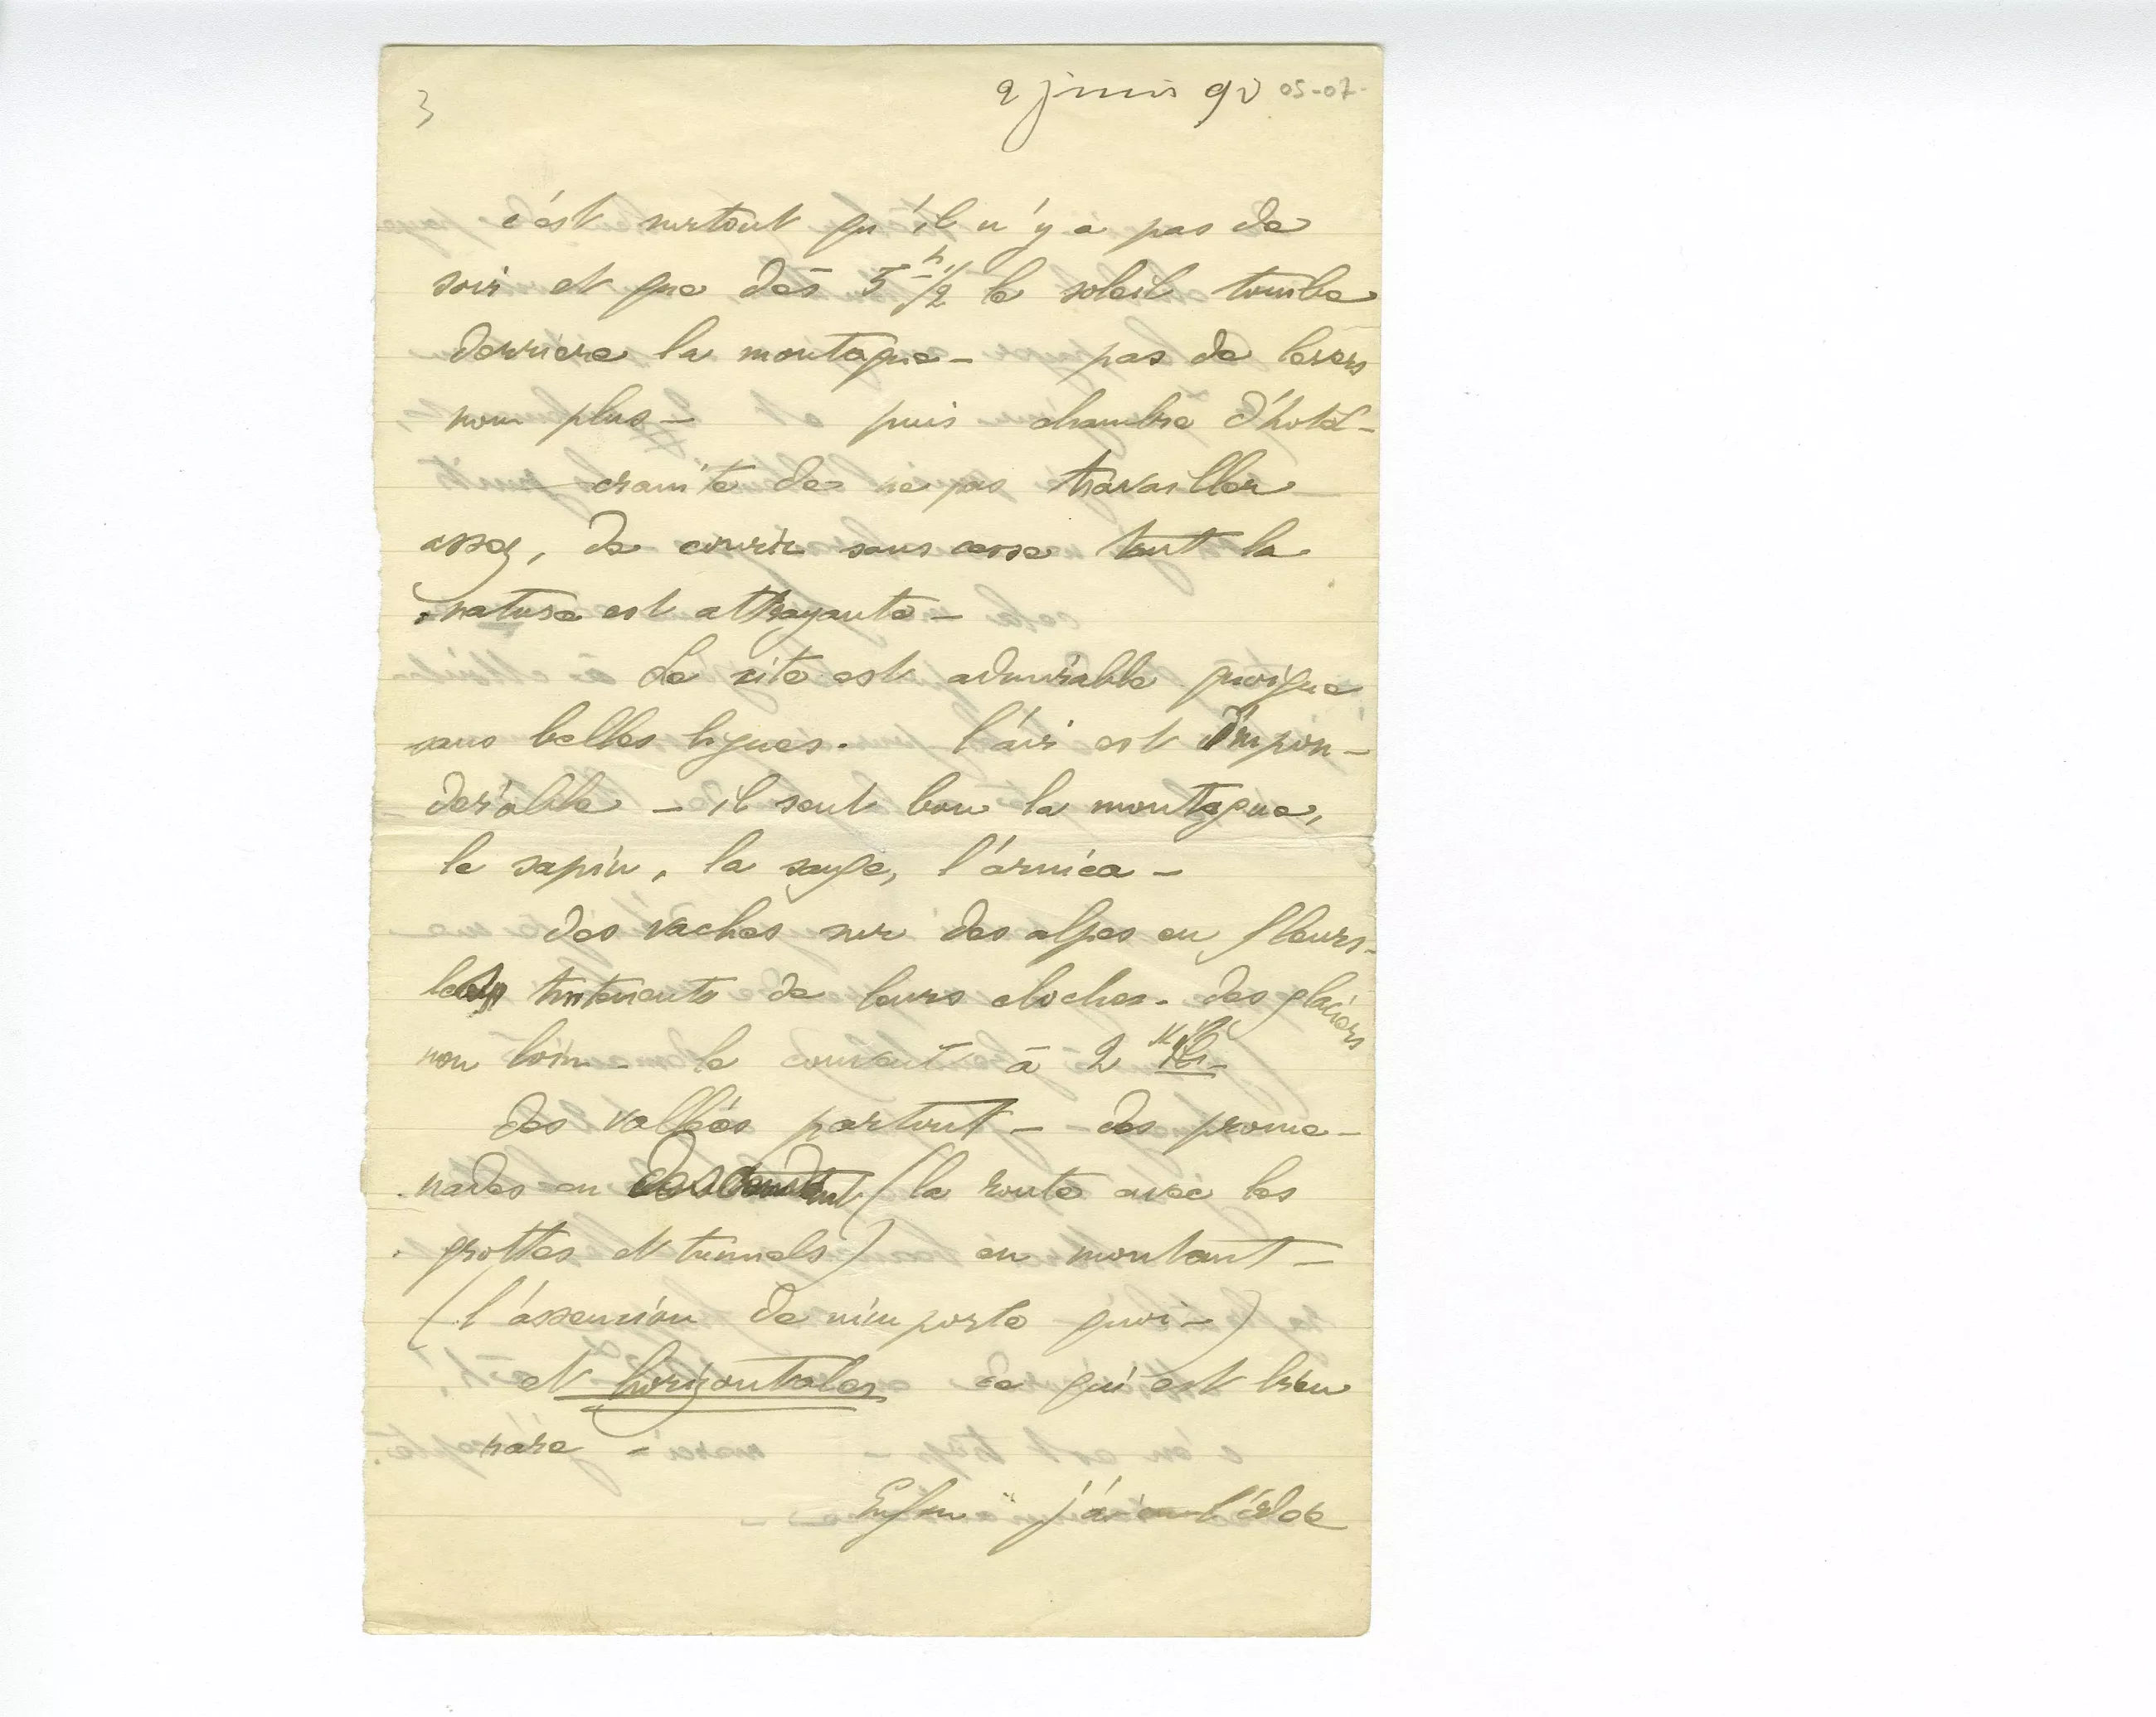 3
9 juin 90 05-07-
c'est surtout qu'il n'y a pas de
soir et que dès 5 h 1/2 le soleil tombe
derriere la montagne — pas de levers
non plus — puis chambre d'hotel —
crainte de ne pas travailler
assez, de courir sans cesse tant la
nature est attrayante —
Le site est admirable quoique
sans belles lignes. l'air est impon-
dérable — il sent bon la montagne,
le sapin, la sauge, l'arnica —
des vaches sur des alpes en fleurs —
les tintements de leurs cloches. des glaciers
non loin — le couvent à 2
des vallées partout — des prome-
nades en descendant (la route avec les
grottes et tunnels) en montant —
(l'assension de n'importe quoi —)
et horizontales ce qui est bien
rare —
Enfin j'ai eu l'idée